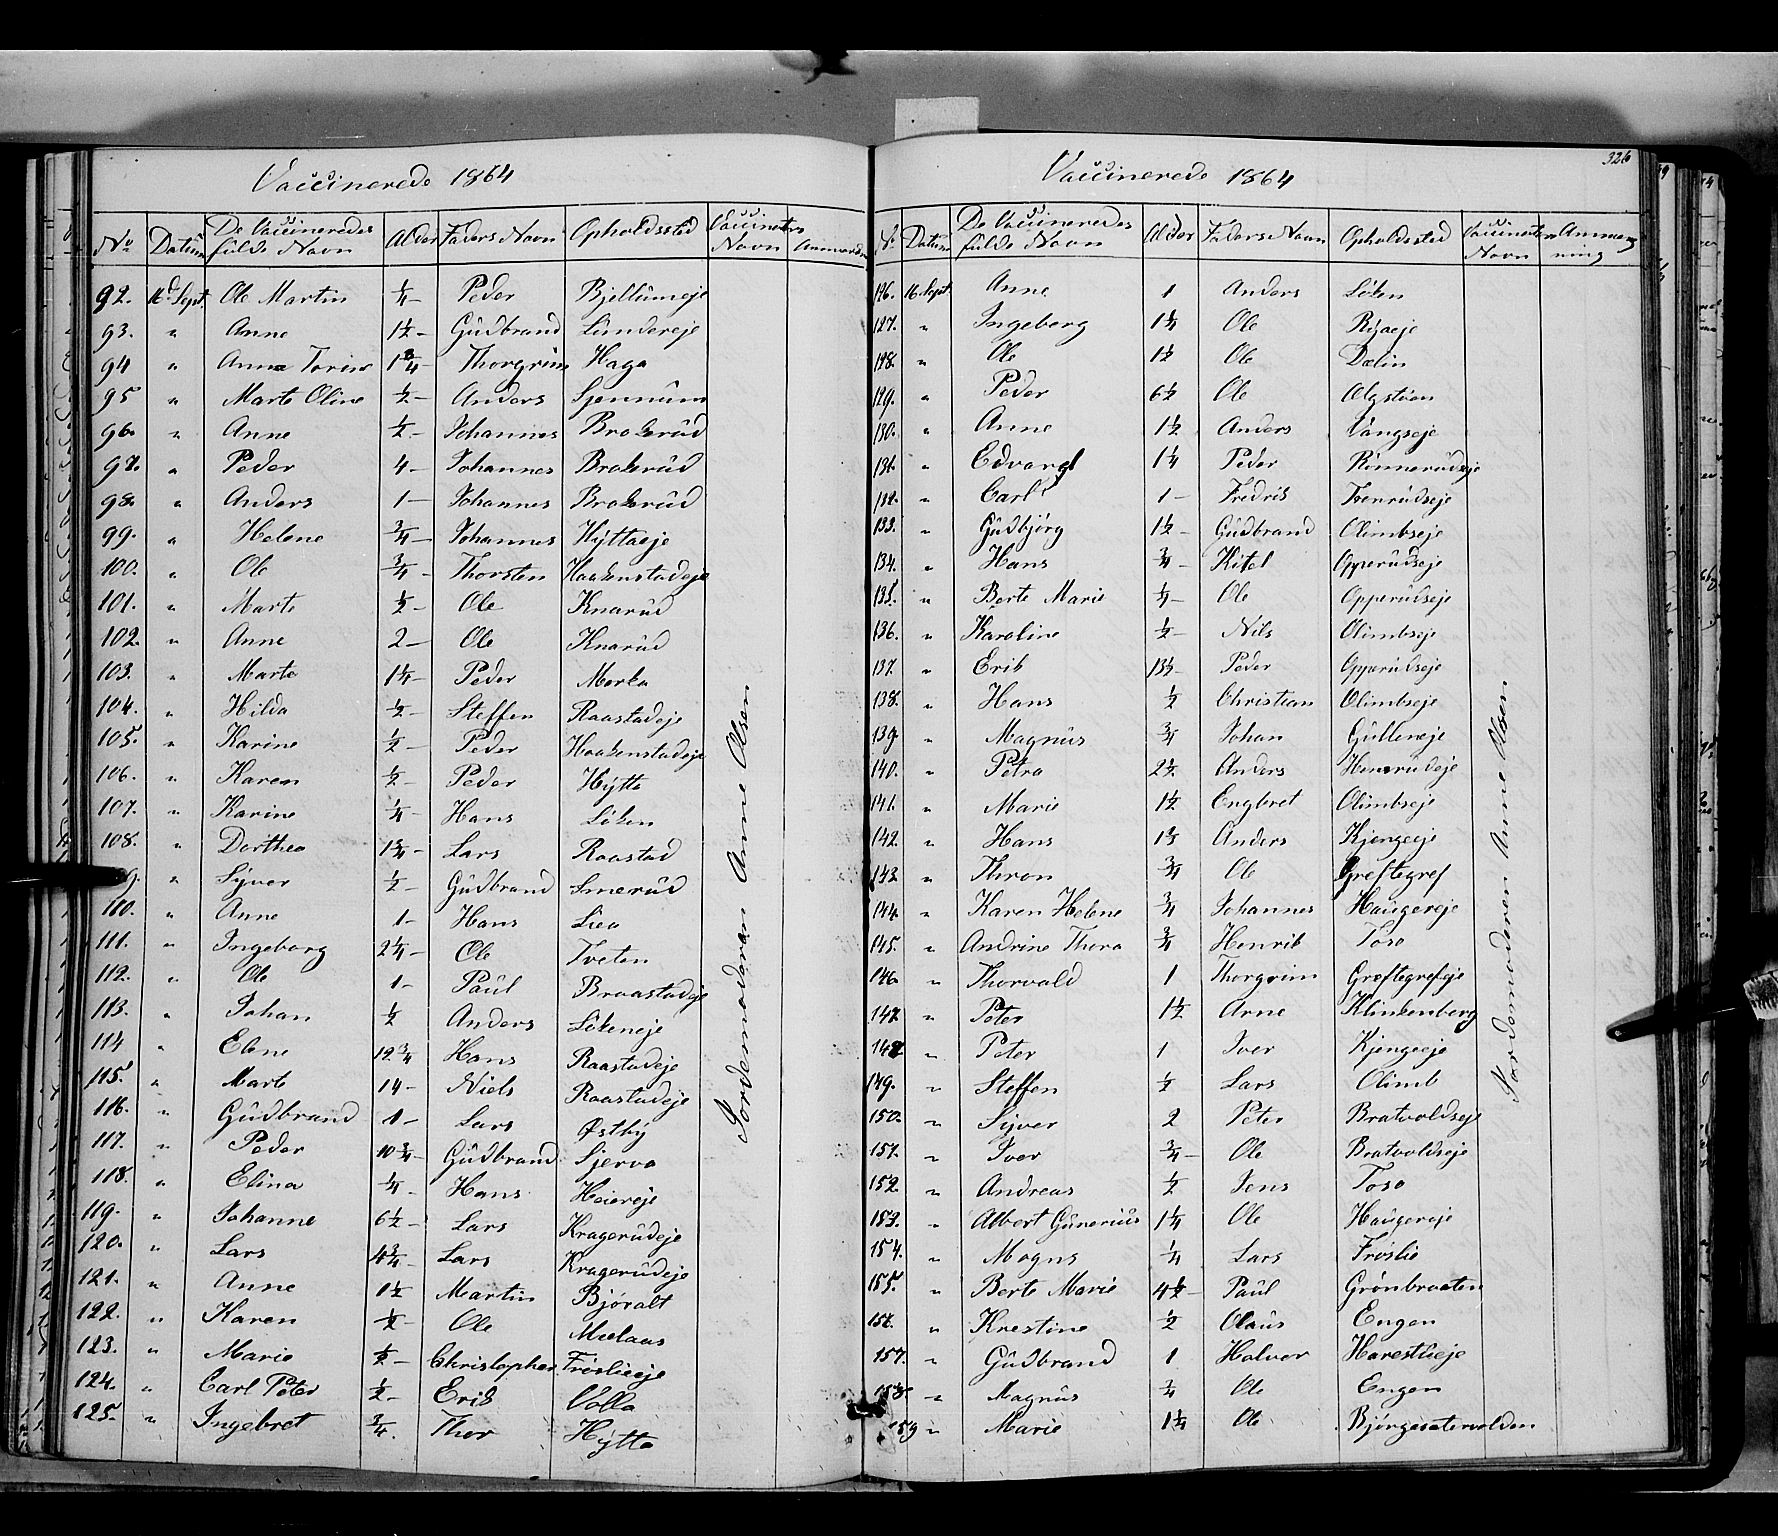 Vaccinerede 1864
No Datum De Vaccineredes fulde Navn Alder Faders Navn Opholdssted Vaccinators Navn Anmærkn
92. 16d Sept. Ole Martin 1/4 – Peder Bjellumeje
93. " Anne 1 1/2 – Gudbrand Lundereje
94 " Anne Torine 1 3/4 – Thorgrim Haga
95 " Marte Oline 1/2 – Anders Sjennum
96. " Anne 1/2 – Johannes Brakerud
97. " Peder 4 – Johannes Brakerud
98. " Anders 1 – Johannes Brakerud
99. " Helene 3/4 – Johannes Hyttaeje
100. " Ole 3/4 – Thorsten Haakenstadeje
101. " Marte 1/2 – Ole Knarud
102. " Anne 2 – Ole Knarud
103. " Marte 1 1/4 – Peder Morka
104. " Hilda 1/2 – Steffen Raastadeje
105. " Karine 1/2 – Peder Haakenstadeje
106. " Karen 1/2 – Peder Hytta
107. " Karine 1/4 – Hans Løken
108. " Dorthea 1 3/4 – Lars Raastad
9. " Syver 1/2 – Gudbrand Smerud
110. " Anne 1 – Hans Liea
111. " Ingeborg 2 1/4 – Ole Tveten
112. " Ole 1 – Paul Braastadeje
113. " Johan 1/2 Anders Løkeneje
114 " Elene 12 3/4 Hans Raastadeje
115. " Marte 14 – Niels Raastadeje
116. " Gudbrand 1 – Lars Østby
117. " Peder 10 3/4 – Gudbrand Sjerva
118. " Elina 1/4 – Hans Heiereje
119. " Johanne 6 1/2 – Lars Kragerudeje
120. " Lars 4 3/4 – Lars Kragerudeje
121. " Anne 1 1/2 Martin Bjøralt
122. " Karen 1/2 Ole Mælaas
123. " Marie 1/2 – Christopher Frøslieeje
124. " Carl Peter 1/2 – Erik Volla
125. " Ingebret 3/4. Thor Hytta
Jordemoderen Anne Olsen
326
Vaccinerede 1864
No Datum De Vaccineredes fulde Navn Alder Faders Navn Opholdssted Vaccinators Navn Anmærkning
126. 16 Sept. Anne 1 Anders Løken
127. " Ingeborg 1 1/4 Ole
128. " Ole 1 1/2 Ole Dælin
129. " Peder 6 1/2 Ole Ølgstøen
130. " Anne 1 1/2 Anders Vangseje
131. " Edvard 1 1/4 Peder Rønnerudseje
132. " Carl 1 – Fredrik
133. " Gudbjørg 1 1/2 – Gudbrand Olimbseje
134. " Hans 3/4 – Kitel Opperudseje
135. " Berte Marie 1/4 – Ole Opperudseje
136. " Karoline 1/2 – Nils Olimbseje
137. " Erik 13 1/2 – Peder Opperudseje
138. " Hans 1/2 Christian Olimbseje
139 " Magnus 3/4 Johan Gulleneje
140. " Petra 2 1/2 Anders Henerudeje
141. " Marie 1 1/2 Engbret Olimbseje
142. " Hans Anders Kjengeeje
143 " Thron 3/4 Ole Greftegref
144. " Karen Helene 3/4 Johannes Haugereje
145. " Andrine Thora 3/4 Henrik Toso
146 " Thorvald 1 Thorgrim Greftegrefeje
147 " Peter 1 1/2 Arne Klinkenberg
148 " Peter 1 Iver Kjengeeje
149. " Steffen 1/2 Lars Olimb
150. " Syver 2 Peter Bratvoldseje
151. " Iver 3/4 – Ole Bratvoldseje
152 " Andreas 1/2 Jens Toso
153. " Albert Gunerius 1 1/4 Ole Haugereje
154. " Mogns 1/4 Lars Frøslie
155. " Berte Marie 4 1/2 – Paul Grønbraaten
156. " Krestine 1/2 Olaus Engen
157. " Gudbrand 1 Halvor Harestlieeje
158 " Magnus 3/4 Ole Engen
159 " Marie 1 1/4 Ole Bjørgesætervolden
Jordemoderen Anne Olsen